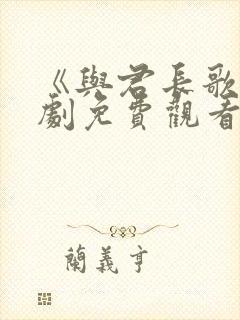 《與君長歌
劇免費觀看
蘭義亨